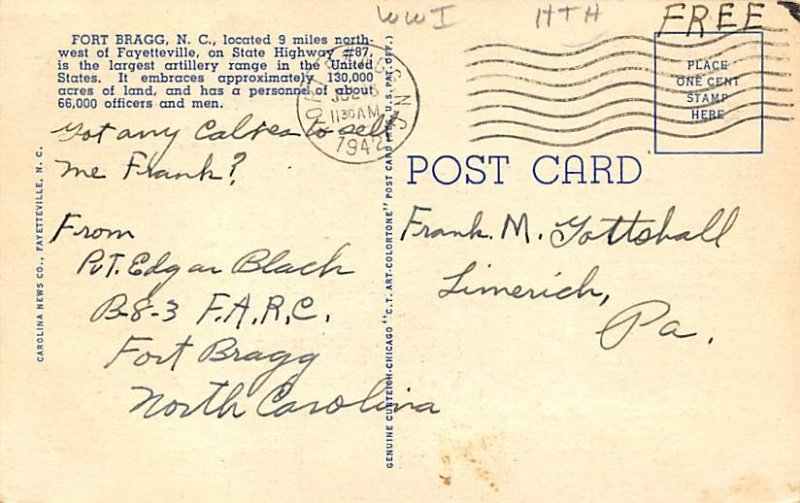 WWI
HTH
FREE
FORT BRAGG, N. C., located 9 miles north-
west of Fayetteville, on State Highway #87,
is the largest artillery range in the United
States. It embraces approximately 130,000
acres of land, and has a personnel of about
66,000 officers and men.
11 30 AM
1942
N.C.
PLACE
ONE CENT
STAMP
HERE
Got any Calves to sell
me Frank?
From
Pvt. Edgar Black
B-8-3 F.A.R.C.
Fort Bragg
North Carolina
CAROLINA NEWS CO., FAYETTEVILLE, N. C.
GENUINE CURTEICH-CHICAGO "C.T. ART-COLORTONE" POST CARD (REG. U.S. PAT. OFF.)
POST CARD
Frank. M. Gottshall
Limerick,
Pa.